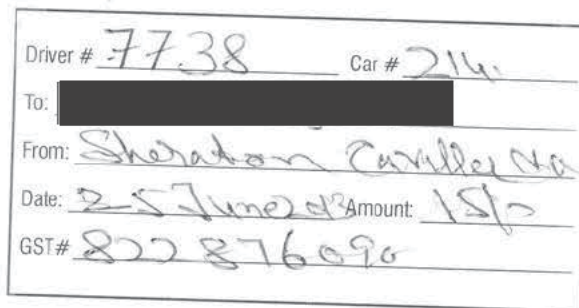 Driver # 7738 Car # 214.
To:
From: Sheraton Cavalier
Date: 25 June Amount:
GST# 822876090